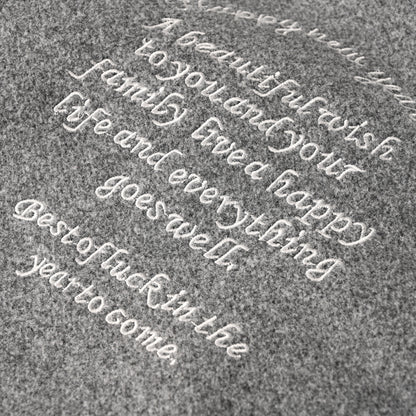 happy new year
A beautiful wish
to you and your
family live a happy
life and everything
goes well.
Best of luck in the
year to come.